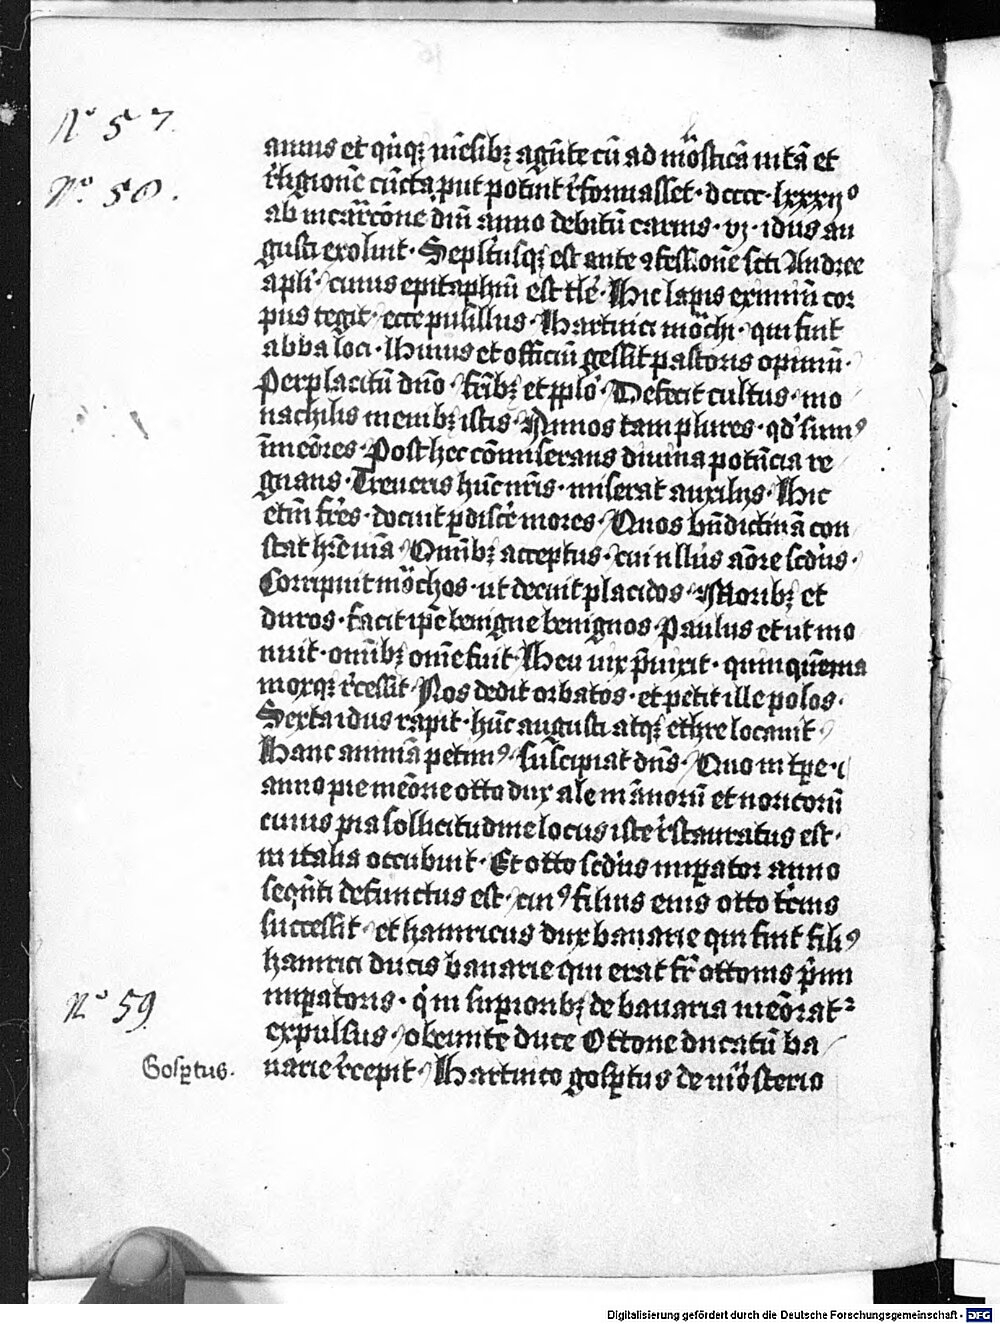 Nº 57.
annus et qu̇iqꝫ mēsibꝫ agēte cū ad mōsticā uitā et
Nº. 58.
ꝛ̇ligionē cūcta put potint ꝛ̇formasset · dcccc · lxxxijº
ab incar̄cōne dn̄i anno debitū carnis · vj · idus au
gusti exoluit · Sepltusqꝫ est ante ꝯfess.onē scti Andree
apli · cuius epitaphiū est tle · Hic lapis eximiū cor
pus tegit · ecce pusillus · Hartuici mōchi · qui fuit
abba loci · Huius et officiū gessit pastoris opimū ·
Perplacitū dn̄o · fr̄ibꝫ et pplo · Defecit cultus · mo
nachilis membꝫ istis · Annos tam plures · qd' simꝰ
īmeōres · Post hec cōmiserans diuina potēcia re
gnans · Treueris hūc nr̄is · miserat auxilijs · Hic
etiā fr̄es · docuit ꝑdiscē mores · Quos bn̄dictinā con
stat hr̄e uiā · Om̄ibꝫ acceptus · cui nllus aōre scdus ·
Corripuit mōchos · ut decuit placidos · Moribꝫ et
duros · facit ip̄e benigne benignos · Paulus et ut mo
nuit · om̄ibꝫ om̄e fuit · Heu uix p̄uixit · quinquēnia
moxqꝫ ꝛ̇cessit · Nos dedit orbatos · et petit ille polos ·
Sexta idus rapit · hūc augusti atqꝫ ethre locauit ·
Hanc animā petimꝰ · suscipiat dn̄s · Quo in tp̄e · i
anno pie meōrie otto dux alemānorū et noricorū
cuius pia sollicitudine locus iste ꝛ̇stauratus est ·
in italia occubuit · Et otto scdus imꝑator anno
seqn̄ti defunctus est · cuiꝰ filius eius otto tcius
successit · et hainricus dux bauarie qui fuit filiꝰ
hainrici ducis bauarie qui erat fr̄ ottonis p̄mi
Nº 59
imꝑatoris · q̇ in suꝑioribꝫ de bauaria meōrat²
expulsus · obeunte duce Ottone ducatū ba
Gosꝑtus.
uarie ꝛ̇cepit · Hartuico gosꝑtus de mōsterio
Digitalisierung gefördert durch die Deutsche Forschungsgemeinschaft - DFG